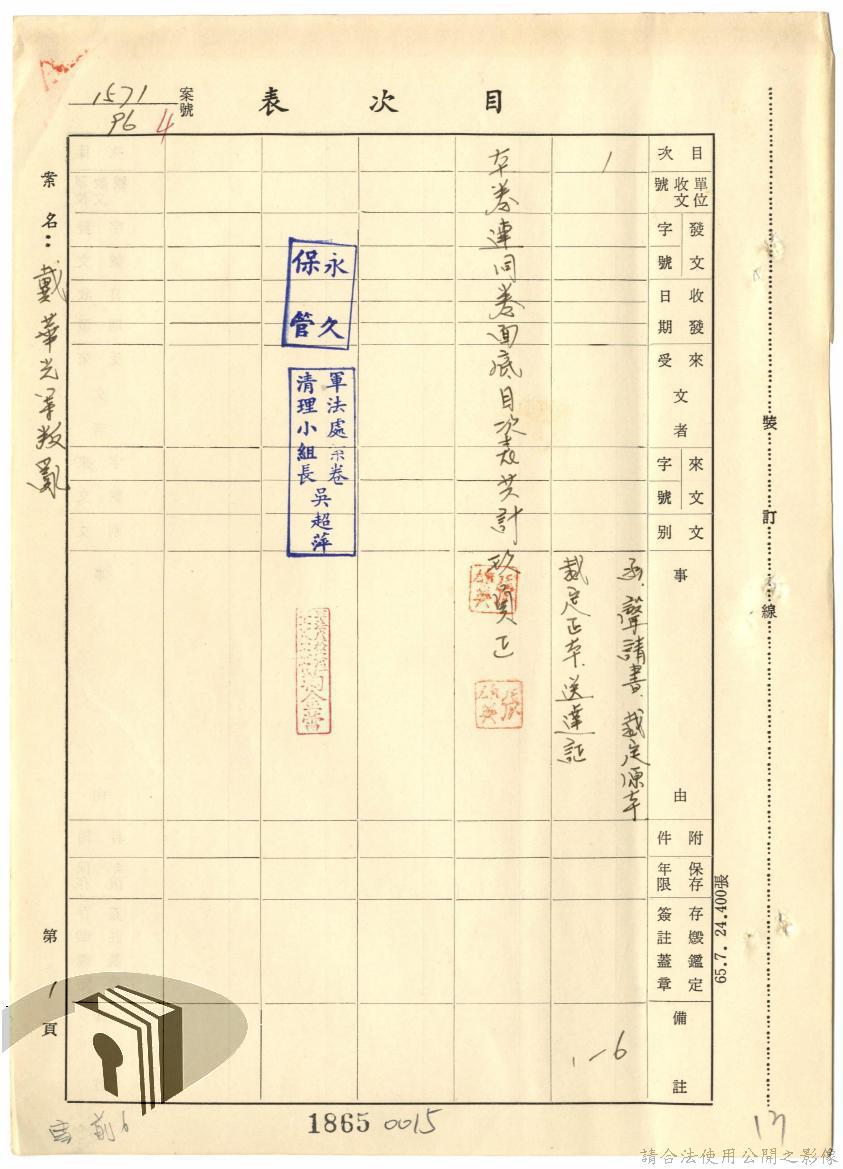 目次表
案號 1571
96 4
目次
單位收文號
發文字號
收發日期
來受文者
來文字號
文別
事由
附件
保存年限
存燬鑑定簽註蓋章
備註
1
函、聲請書、裁定原本
裁定正本、送達証
1-6
本卷連同卷面底目次表共計玖頁正
永久
保管
軍法處案卷
清理小組長 吳超萍
案名：戴華光等叛亂
第1頁
裝訂線
65.7. 24.400張
1865 0015
前6
17
請合法使用公開之影像